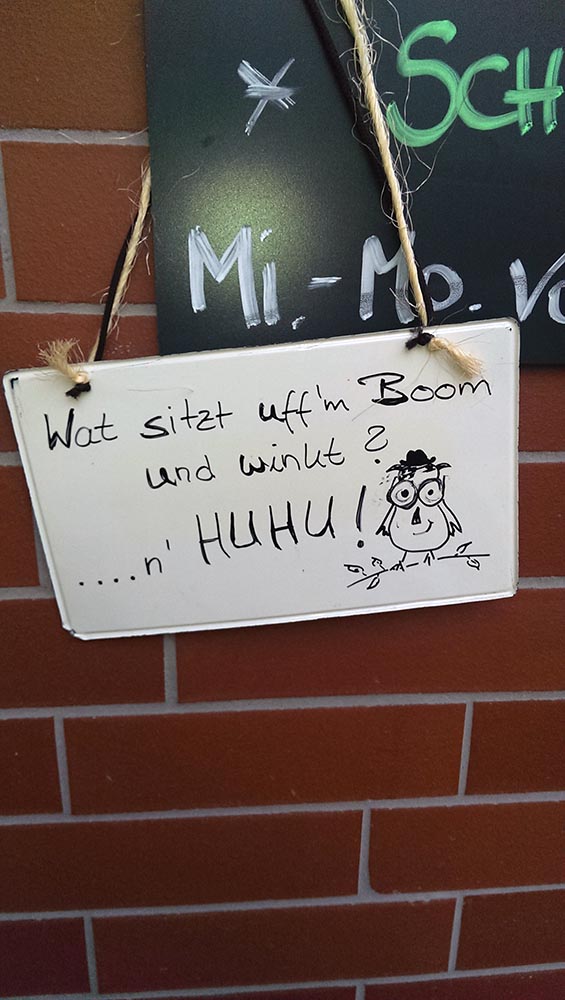 SCH
Mi.-Mo. Vo
Wat sitzt uff'm Boom
und winkt?
....n' HUHU!